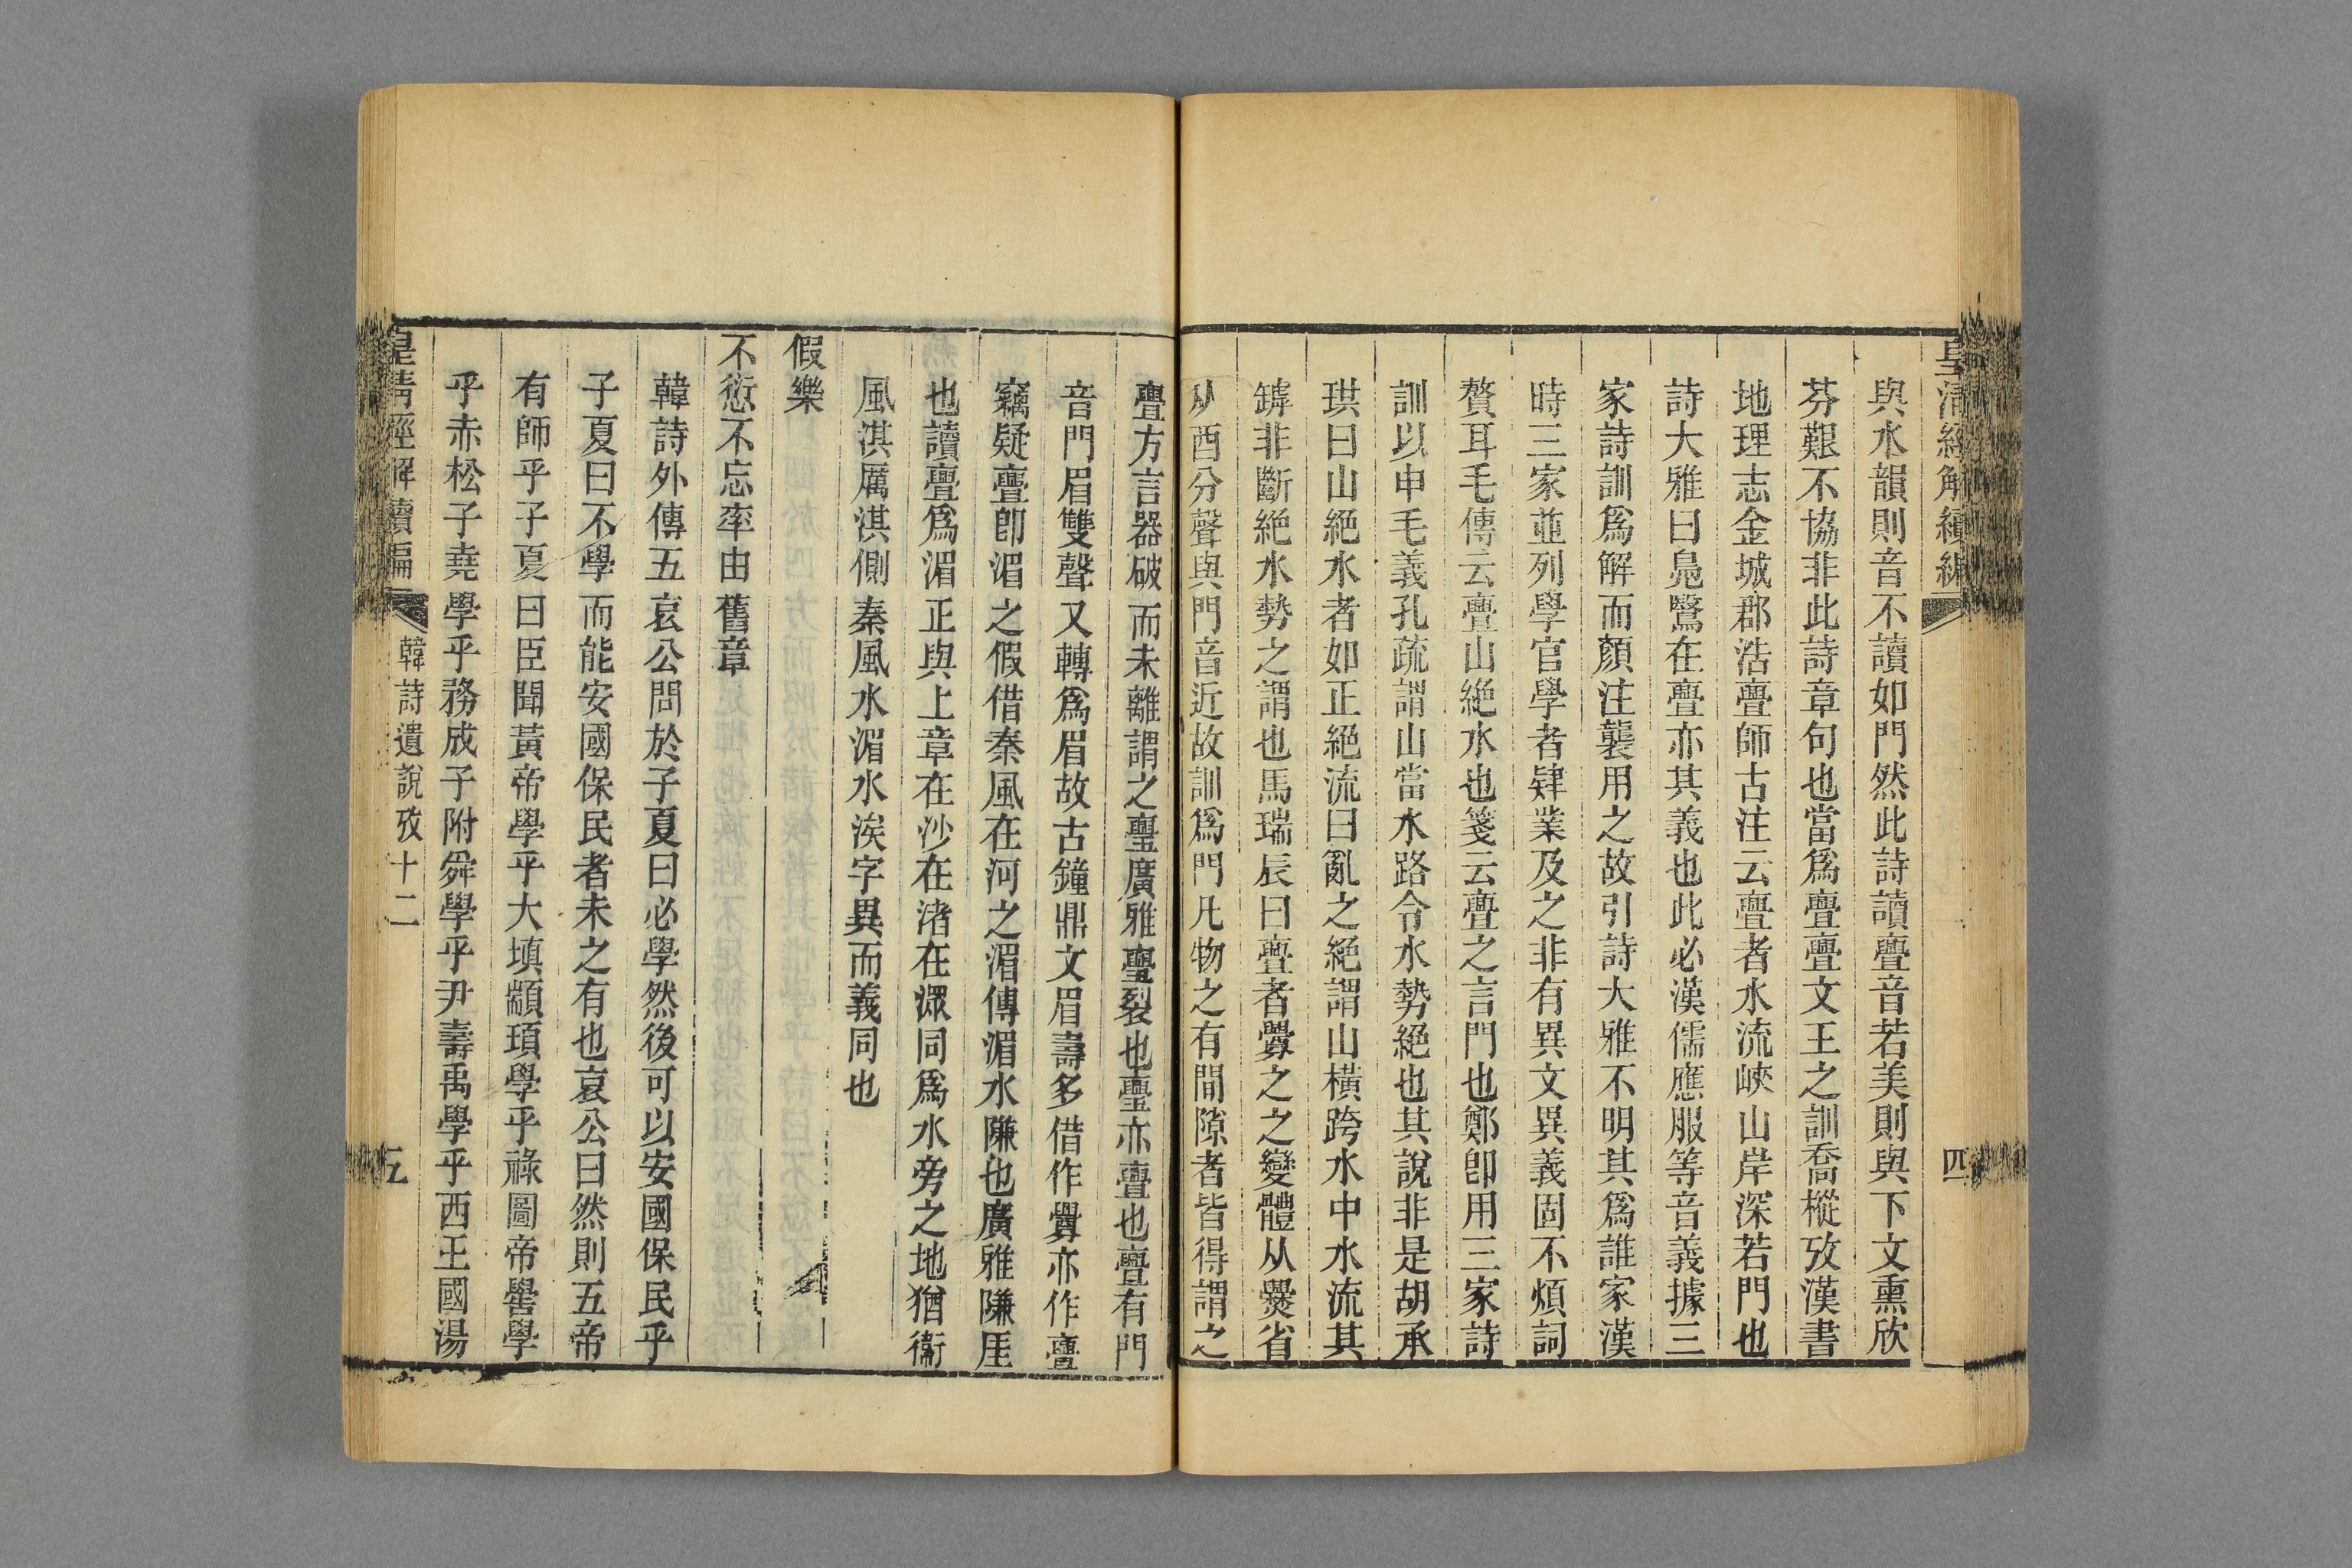 皇清經解續編
四
與水韻則音不讀如門然此詩讀亹音若美則與下文熏欣
芬艱不協非此詩章句也當爲亹亹文王之訓喬樅攷漢書
地理志金城郡浩亹師古注云亹者水流峽山岸深若門也
詩大雅曰鳧鷖在亹亦其義也此必漢儒應服等音義據三
家詩訓爲解而顏注襲用之故引詩大雅不明其爲誰家漢
時三家並列學官學者肄業及之非有異文異義固不煩詞
贅耳毛傳云亹山絕水也箋云亹之言門也鄭卽用三家詩
訓以申毛義孔疏謂山當水路令水勢絕也其說非是胡承
珙曰山絕水者如正絕流曰亂之絕謂山橫跨水中水流其
罅非斷絕水勢之謂也馬瑞辰曰亹者釁之之變體从爨省
从酉分聲與門音近故訓爲門凡物之有間隙者皆得謂之
亹方言器破而未離謂之璺廣雅璺裂也璺亦亹也亹有門
音門眉雙聲又轉爲眉故古鐘鼎文眉壽多借作釁亦作亹
竊疑亹卽湄之假借秦風在河之湄傳湄水隒也廣雅隒厓
也讀亹爲湄正與上章在沙在渚在潀同爲水旁之地猶衞
風淇厲淇側秦風水湄水涘字異而義同也
假樂
不愆不忘率由舊章
韓詩外傳五哀公問於子夏曰必學然後可以安國保民乎
子夏曰不學而能安國保民者未之有也哀公曰然則五帝
有師乎子夏曰臣聞黃帝學乎大塡顓頊學乎祿圖帝嚳學
乎赤松子堯學乎務成子附舜學乎尹壽禹學乎西王國湯
皇清經解續編
韓詩遺說攷十二
五